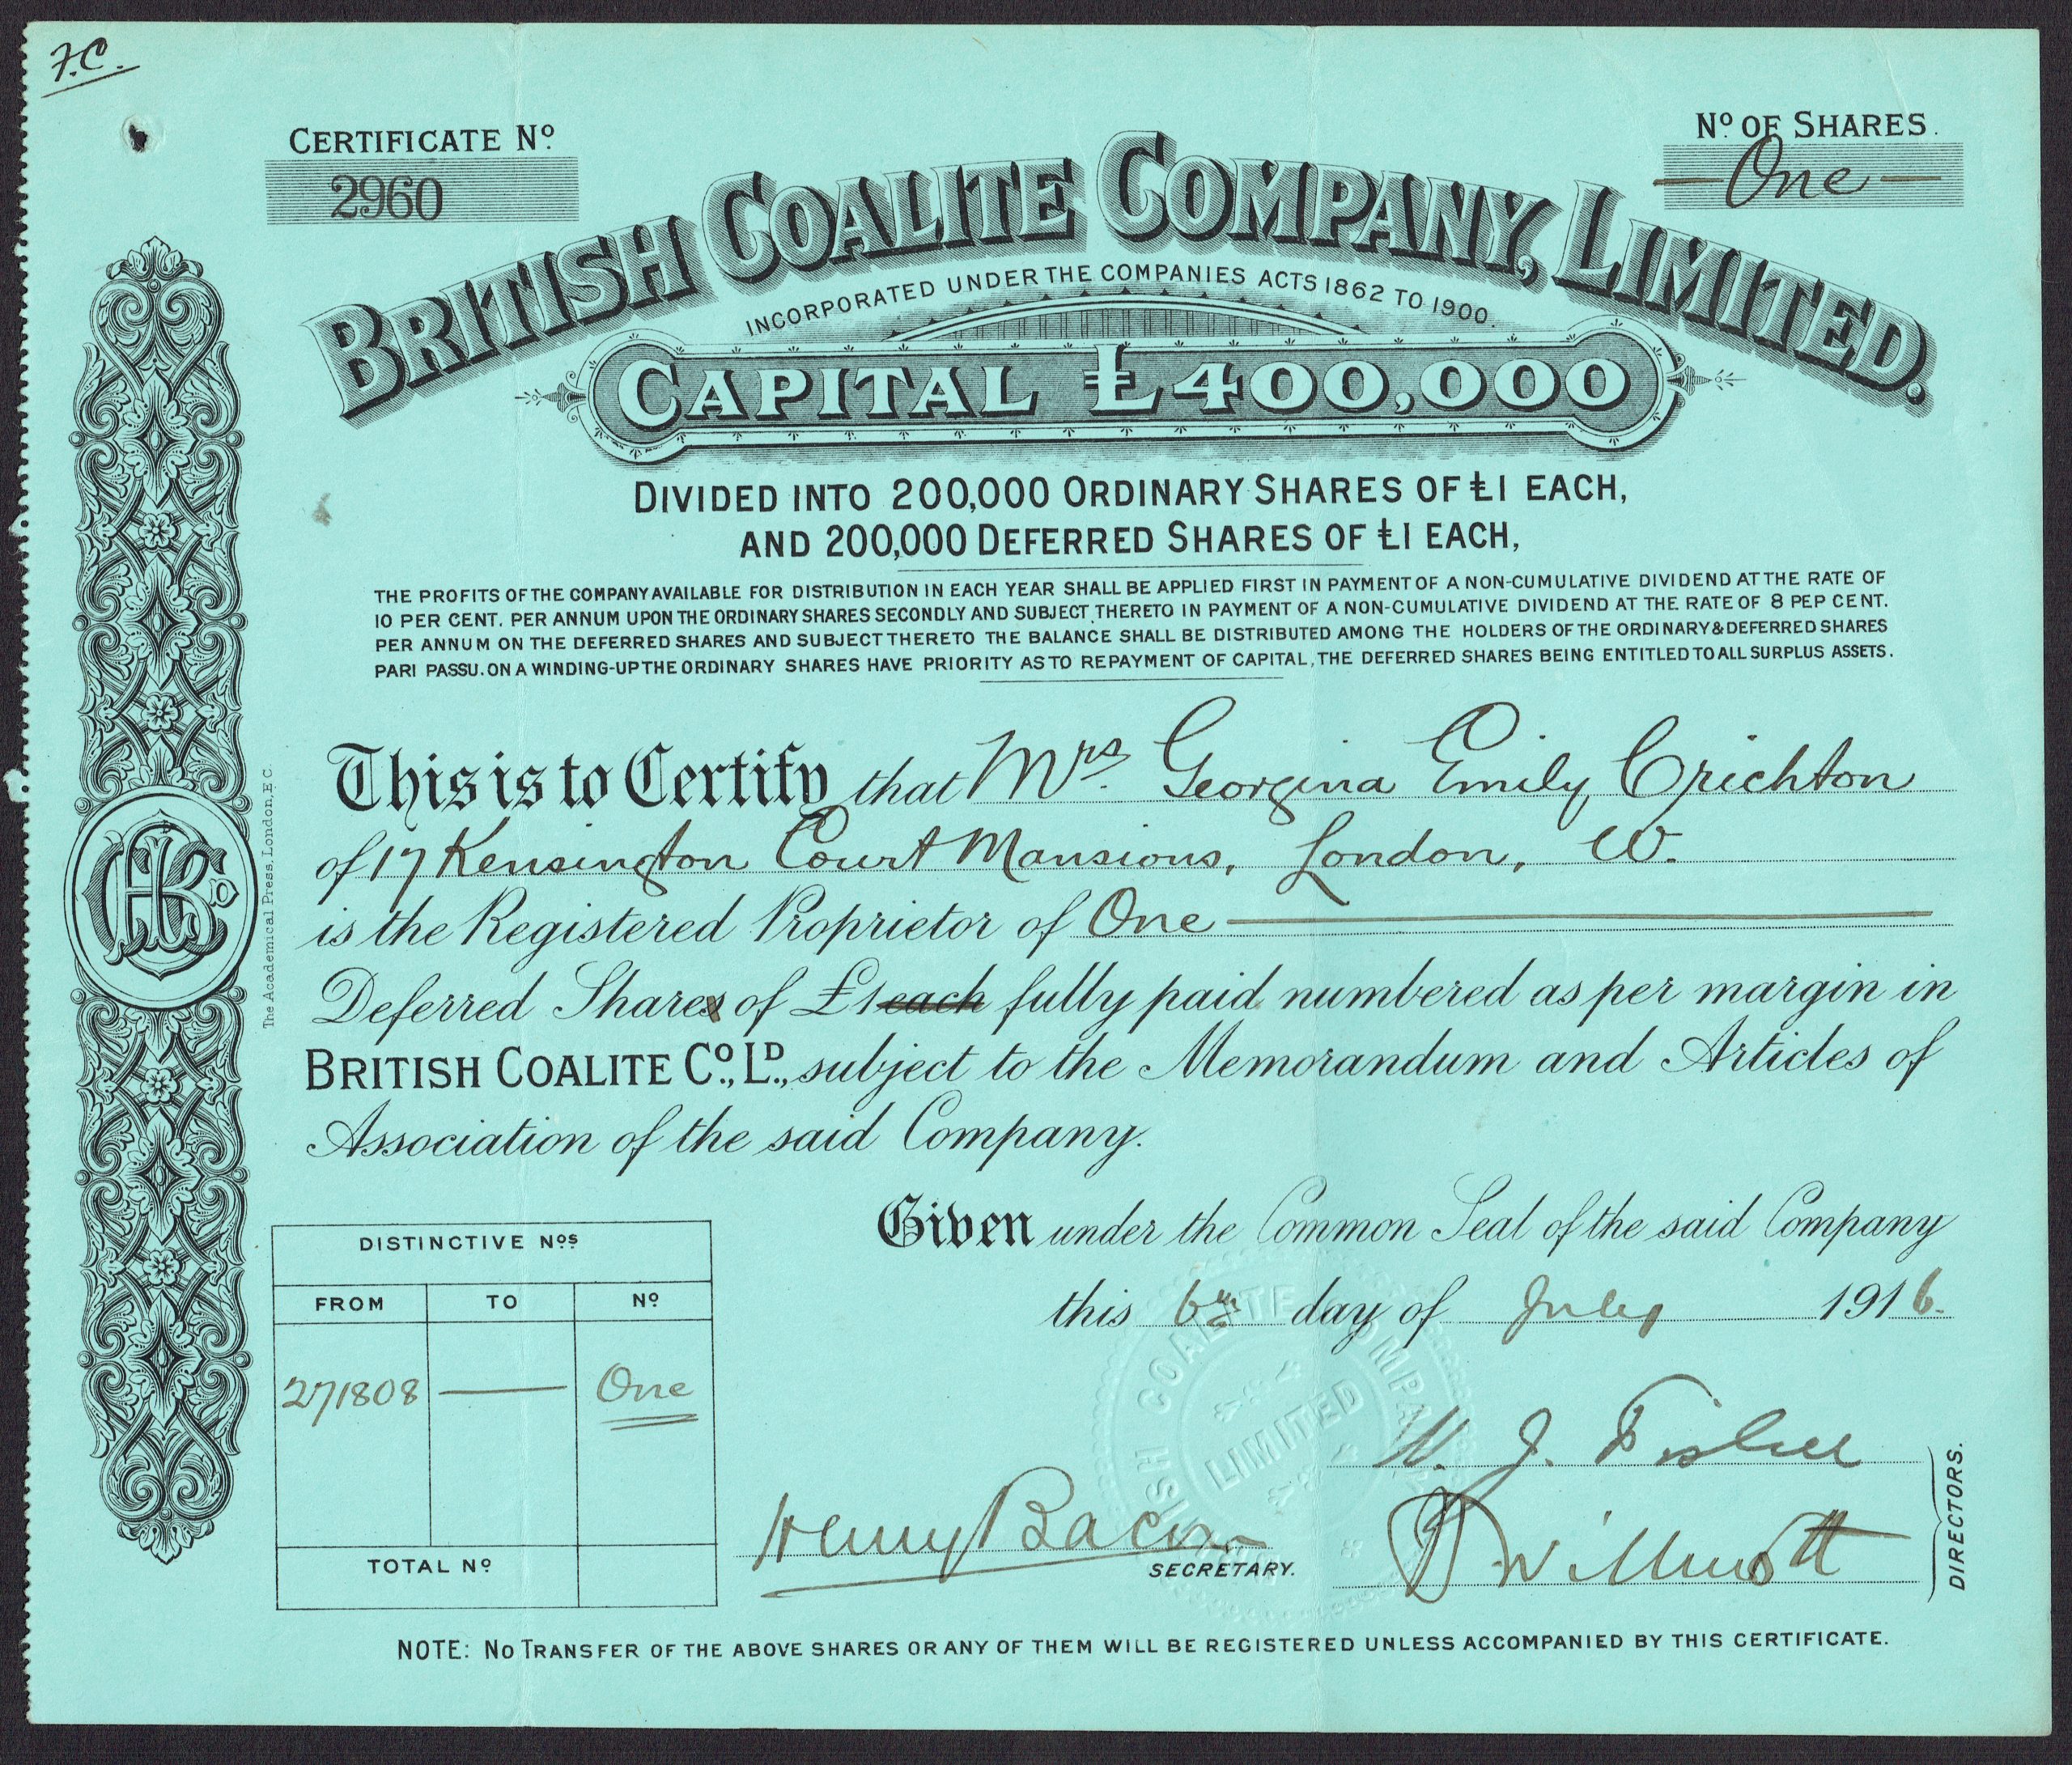 F.C.
CERTIFICATE Nº
2960
Nº OF SHARES.
One
BRITISH COALITE COMPANY, LIMITED.
INCORPORATED UNDER THE COMPANIES ACTS 1862 TO 1900.
CAPITAL £400,000
DIVIDED INTO 200,000 ORDINARY SHARES OF £1 EACH,
AND 200,000 DEFERRED SHARES OF £1 EACH,
THE PROFITS OF THE COMPANY AVAILABLE FOR DISTRIBUTION IN EACH YEAR SHALL BE APPLIED FIRST IN PAYMENT OF A NON-CUMULATIVE DIVIDEND AT THE RATE OF
10 PER CENT. PER ANNUM UPON THE ORDINARY SHARES SECONDLY AND SUBJECT THERETO IN PAYMENT OF A NON-CUMULATIVE DIVIDEND AT THE RATE OF 8 PEP CENT.
PER ANNUM ON THE DEFERRED SHARES AND SUBJECT THERETO THE BALANCE SHALL BE DISTRIBUTED AMONG THE HOLDERS OF THE ORDINARY & DEFERRED SHARES
PARI PASSU. ON A WINDING-UP THE ORDINARY SHARES HAVE PRIORITY AS TO REPAYMENT OF CAPITAL, THE DEFERRED SHARES BEING ENTITLED TO ALL SURPLUS ASSETS.
This is to Certify that Mrs. Georgina Emily Crichton
of 17 Kensington Court Mansions, London, W.
is the Registered Proprietor of One
Deferred Shares of £1 each fully paid numbered as per margin in
BRITISH COALITE Cº., Lᴰ., subject to the Memorandum and Articles of
Association of the said Company.
Given under the Common Seal of the said Company
this 6th day of July 1916.
The Academical Press, London, E.C.
DISTINCTIVE Nºˢ
FROM TO Nº
271808 — One
TOTAL Nº
BRITISH COALITE COMPANY
LIMITED
Henry Bacon
SECRETARY.
W. J. Fisher
Willmott
DIRECTORS.
NOTE: NO TRANSFER OF THE ABOVE SHARES OR ANY OF THEM WILL BE REGISTERED UNLESS ACCOMPANIED BY THIS CERTIFICATE.